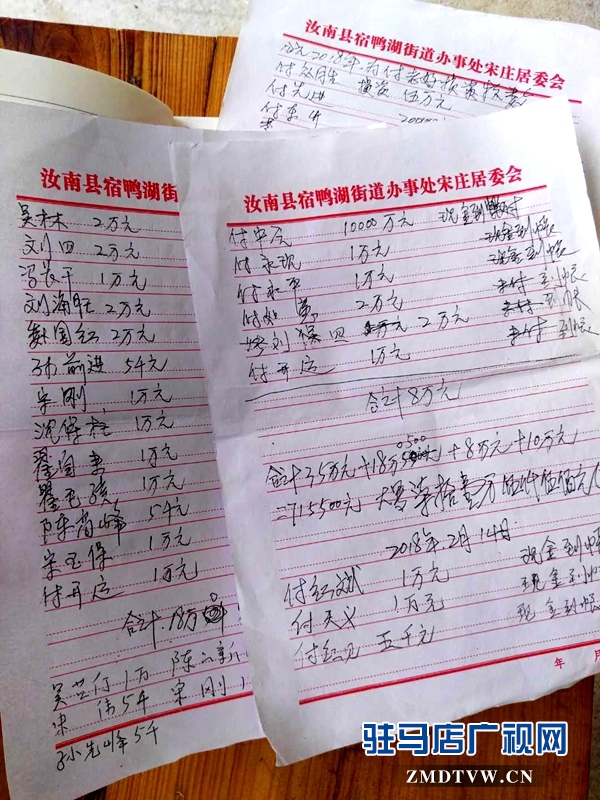 汝南县宿鸭湖街道办事处宋庄居委会
2018年为付
付 捐资 伍万元
汝南县宿鸭湖街
吴 林 2万元
刘四 2万元
1万元
刘海旺 2万元
魏国红 2万元
孙前进 5千元
宋刚 1万元
沈保柱 1万元
翟国 1万元
翟 1万元
陈尚峰 5千元
宋玉保 1万元
付开运 1万元
合计 18万
吴世行 1万 陈 新
宋伟5千 宋刚 1
孙先峰5千
汝南县宿鸭湖街道办事处宋庄居委会
付军 10000万元 现金到
付永现 1万元 现金到帐
付永平 1万元 现金到帐
付 勇 2万元 未付 到帐
刘保四 2万元 未付 到帐
付开运 1万元
合计8万元
合计35万元+18万0500+8万元+10万元
=715500元 大写柒拾壹万伍仟伍佰元
2018年2月14日
付红斌 1万元 现金到帐
付天义 1万元 现金到帐
付红见 五千元 现金到帐
年 月
驻马店广视网
ZMDTVW.CN